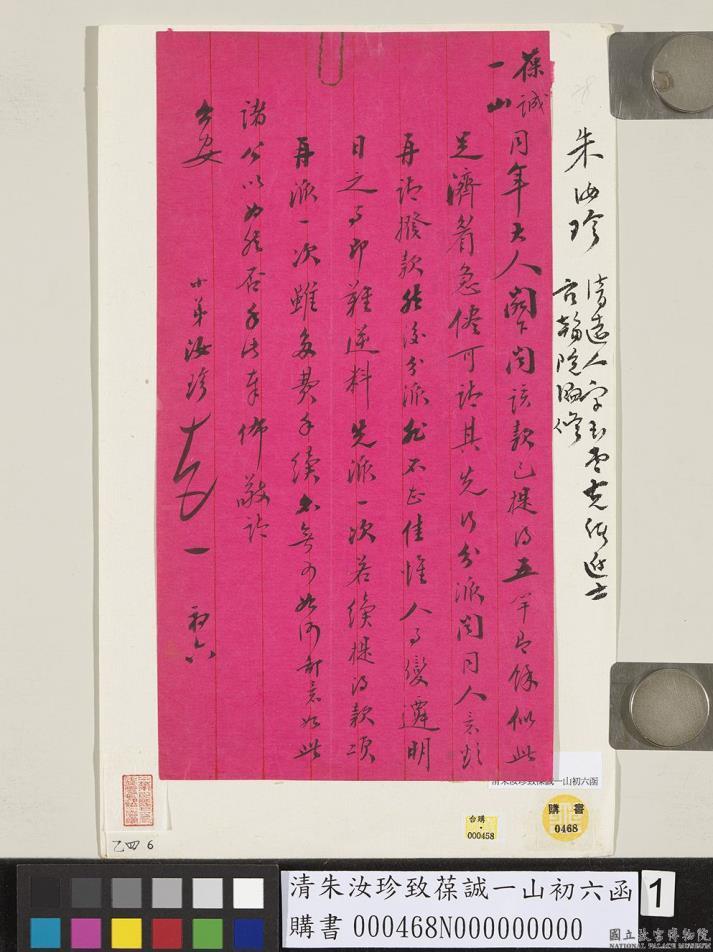 葆誠
一山
同年大人閣下聞該款已提得五千四餘似此
足濟着急儘可訪其先行分派聞同人意欲
再訪撥款然後分派非不正佳惟人事變遷明
日之事即難逆料先派一次若續提得款項
再派一次雖多費手續亦無可如何鄙意如此
諸公以為然否手此奉佈敬訪
台安
小弟汝珍 一 初六
朱汝珍
清遠人字玉堂光緒進士
官翰院編修
清朱汝珍致葆誠一山初六函
台購
000458
購書
0468
乙四6
清朱汝珍致葆誠一山初六函
購書 000468N000000000
1
國立故宮博物院
NATIONAL PALACE MUSEUM